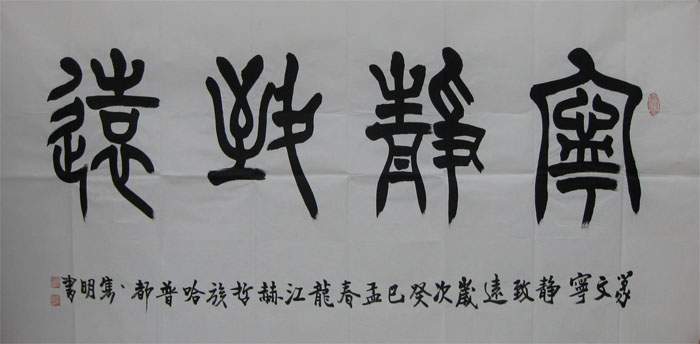 寧靜致遠
篆文寧靜致遠歲次癸巳孟春龍江赫哲族哈普都、隽明書